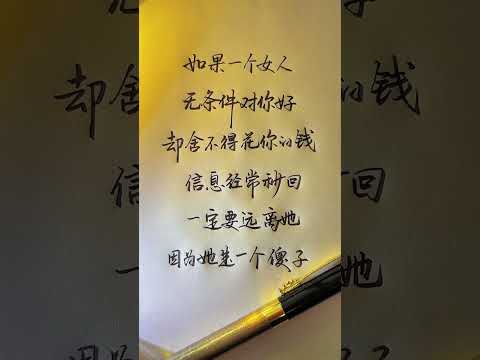 如果一个女人
无条件对你好
却舍不得花你的钱
信息经常秒回
一定要远离她
因为她是一个傻子